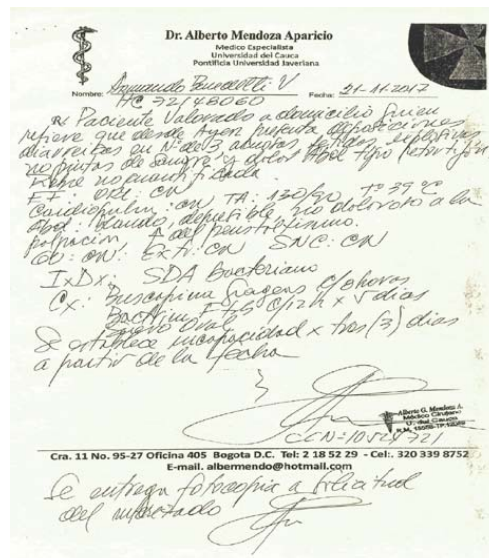 Dr. Alberto Mendoza Aparicio
Medico Especialista
Universidad del Cauca
Pontificia Universidad Javeriana
Nombre: Armando Benedetti V Fecha: 21-11-2017
HC 72148060
R/ Paciente Valorado a domicilio quien
refiere que desde Ayer presenta deposiciones
diarreicas en N° de 3 abuntas explosivas
no pintas de sangre y dolor Abd tipo retortijon
fiebre no cuantificada.
E.F: ORL: CN
Cardiopulm: CN TA: 130/90 T° 39 °C
Abd: blando, depresible no doloroso a la
palpación ↑ del peristaltismo.
GU: CN: Extr: CN SNC: CN
IxDx: SDA Bacteriano
Cx: Buscapina Grageas c/8 horas
Bactrim F c/12h x 5 dias
Suero Oral
Se establece incapacidad x tres (3) dias
a partir de la fecha
Alberto G. Mendoza A.
Médico Cirujano
U. del Cauca
CC N=10524721
Cra. 11 No. 95-27 Oficina 405 Bogota D.C. Tel: 2 18 52 29 - Cel:. 320 339 8752
E-mail. albermendo@hotmail.com
Se entrega fotocopia a solicitud
del interesado